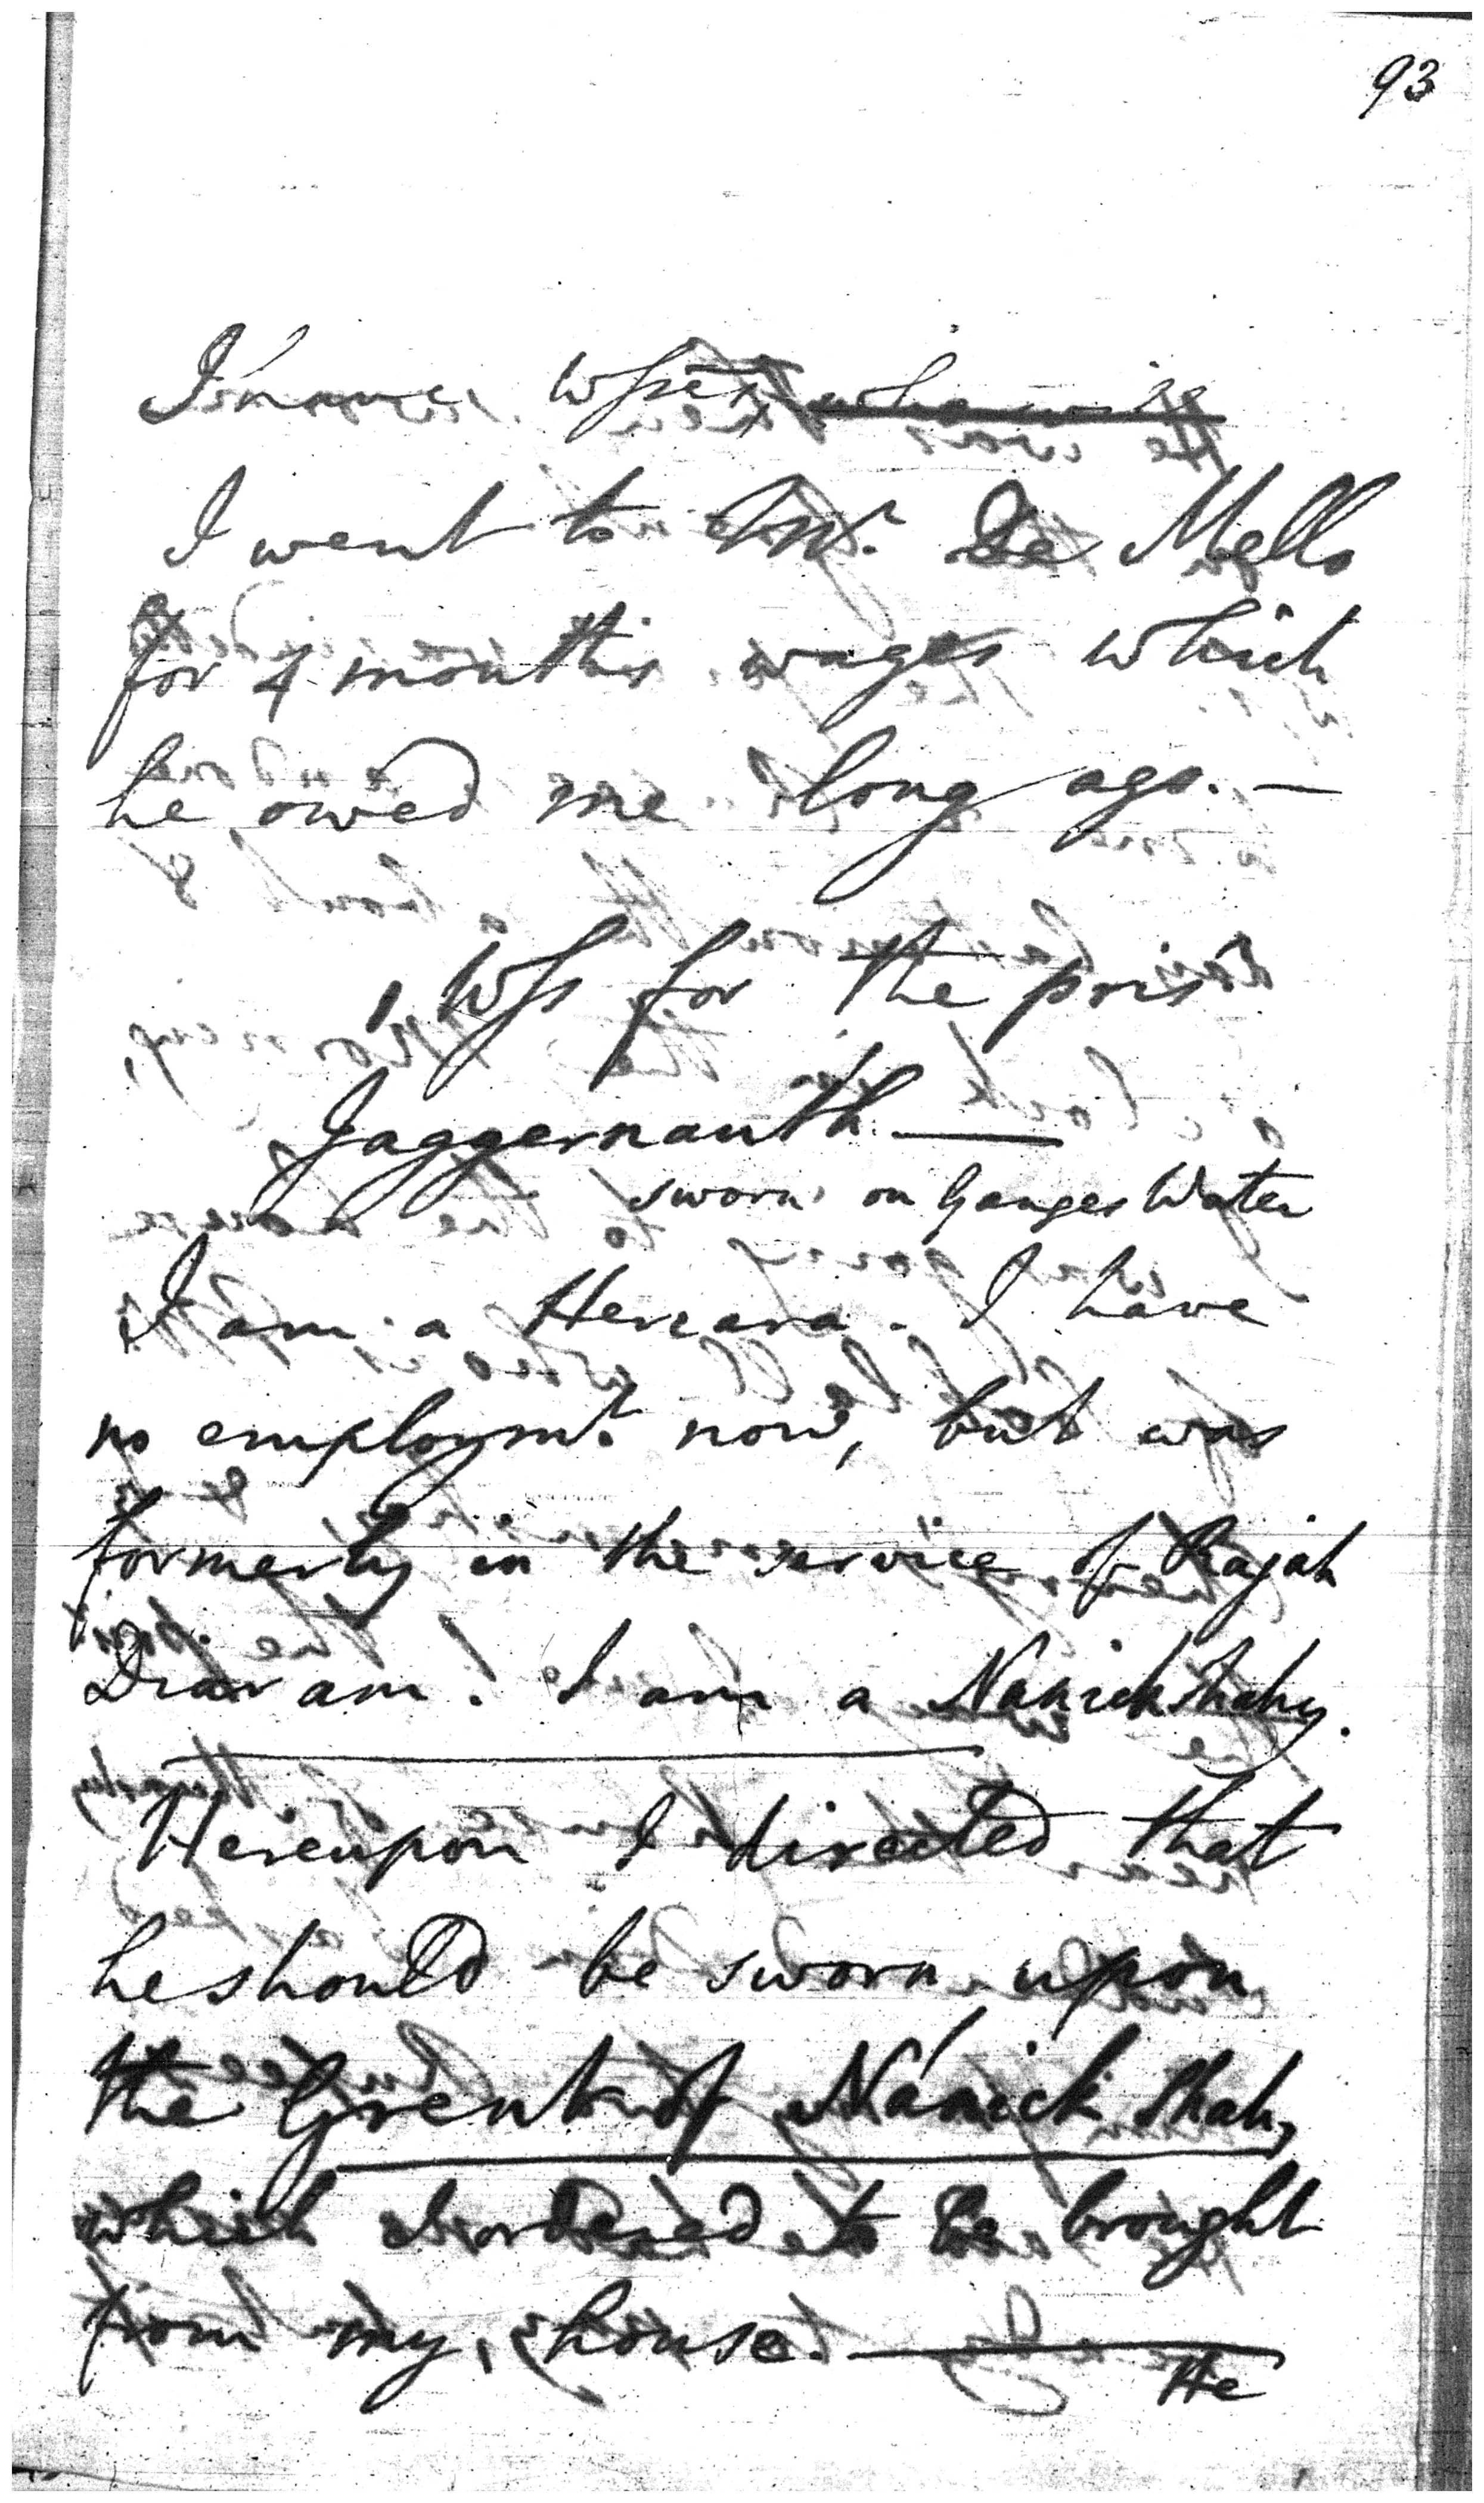 93
I have
I went to Mr. De Mello
for 4 months wages which
he owed me long ago. —
1 Wss for the prisr
Jaggernauth —
sworn on Ganges Water
I am a Hercara. I have
no employmt. now, but was
formerly in the service of Rajah
I am a Nanickshahy.
Hereupon I directed that
he should be sworn upon
the Grent of Nanick Shah,
which I ordered to be brought
from my house. —
He